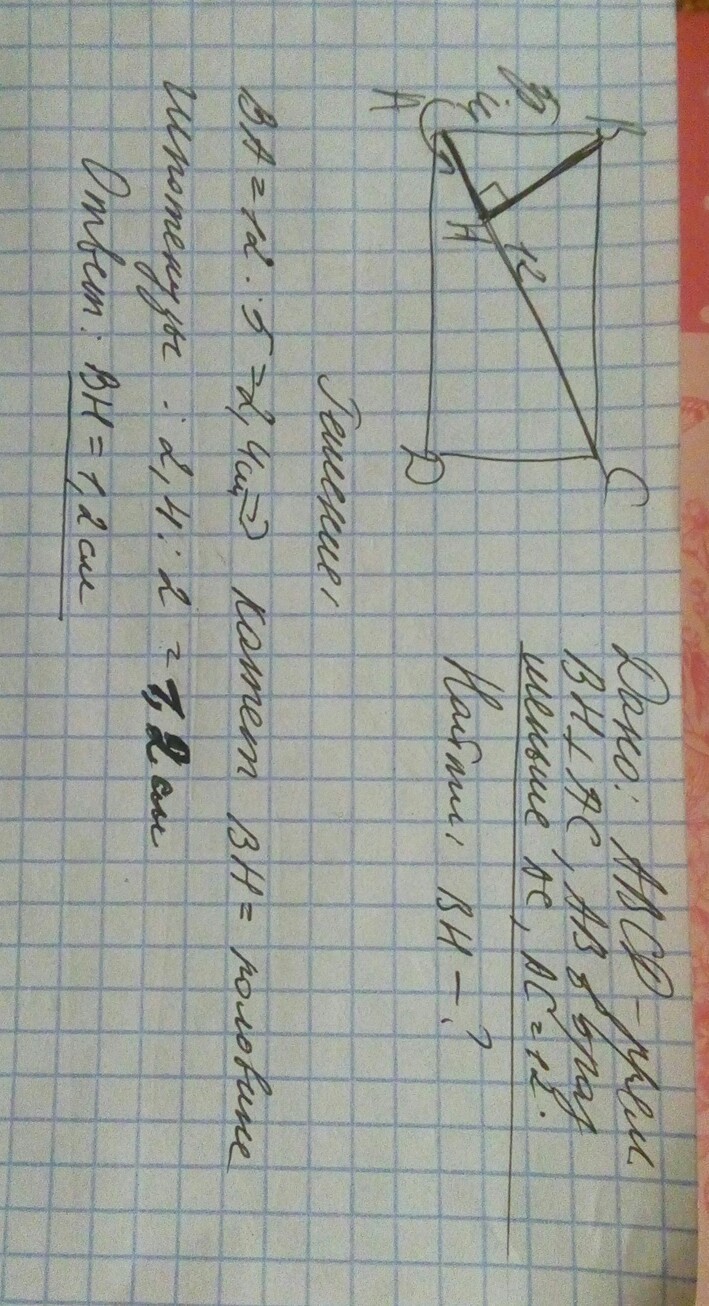 Дано: ABCD - прям
BH⊥AC, AB в 5 раз
меньше AC, AC=12.
Найти: BH - ?
A
H
12
D
C
Решение:
BA = 12 : 5 = 2,4см ⇒ катет BH = половине
гипотенузы : 2,4 : 2 = 1,2 см
Ответ: BH = 1,2 см